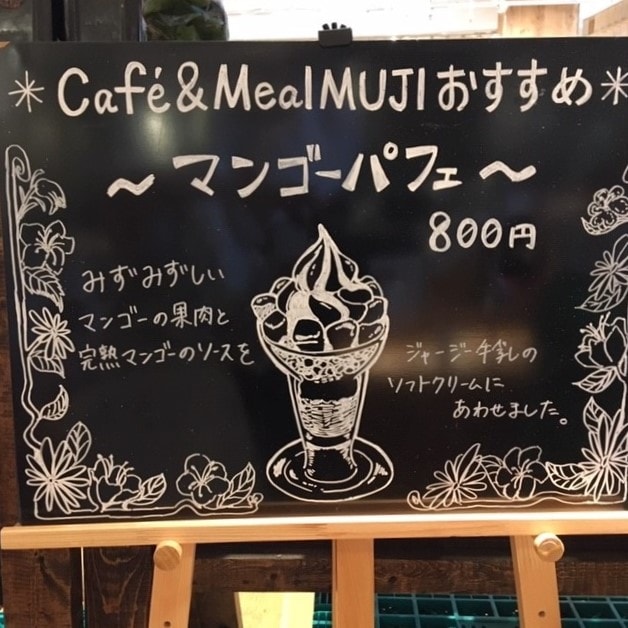 *Café&MealMUJIおすすめ*
~マンゴーパフェ~
800円
みずみずしい
マンゴーの果肉と
完熟マンゴーのソースを
ジャージー牛乳の
ソフトクリームに
あわせました。